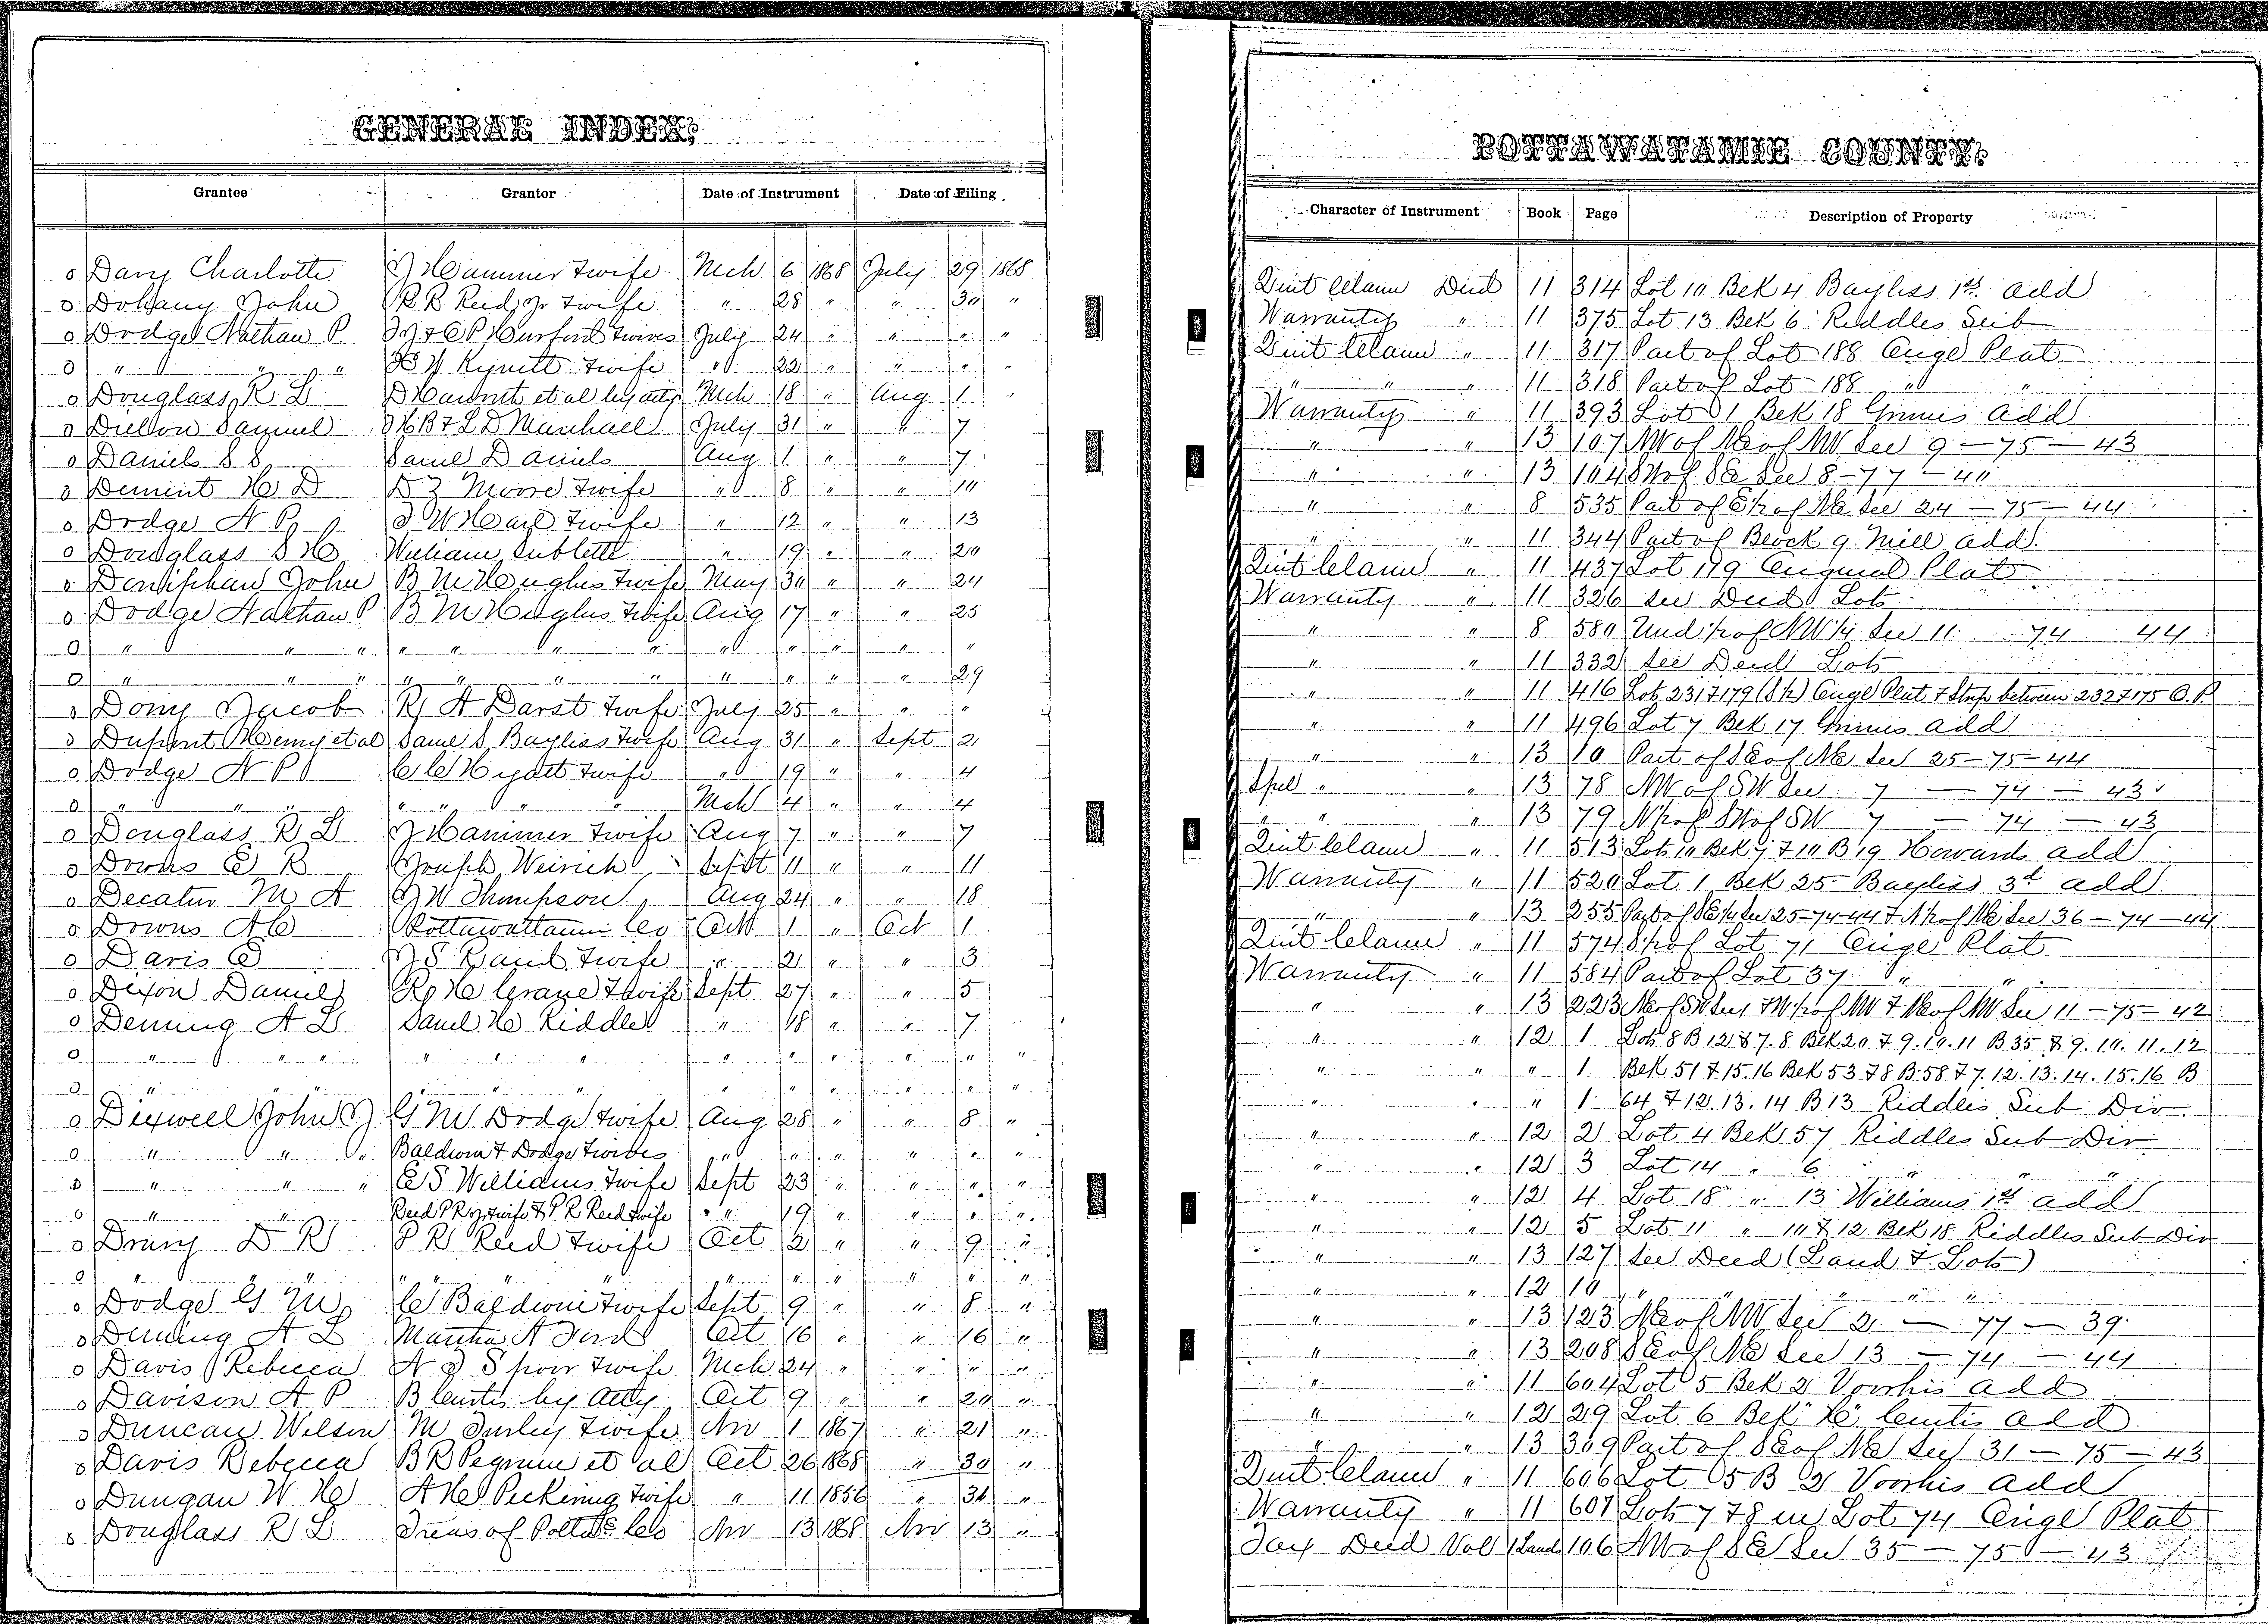 GENERAL INDEX,
Grantee Grantor Date of Instrument Date of Filing
o Davy Charlotte J Hammer & wife Mch 6 1868 July 29 1868
o Dohany John R R Reed Jr & wife " 28 " " 30 "
o Dodge Nathan P & O P Hurford & wives July 24 " " " "
o " " " Kynett & wife " 22 " " " "
o Douglass R L D Haworth et al by atty Mch 18 " Aug 1 "
o Dillon Samuel & L D Marshall July 31 " " 7
o Daniels S S Saml Daniels Aug 1 " " 7
o Dement H D D Z Moore & wife " 8 " " 10
o Dodge N P & wife " 12 " " 13
o Douglass S H William Sublett " 19 " " 20
o Doniphan John B M Hughes & wife May 30 " " 24
o Dodge Nathan P B M Hughes & wife Aug 17 " " 25
o " " " " " " " " " " " "
o " " " " " " " " " " " 29
o Dony Jacob R A Darst & wife July 25 " " "
o Dupont Henry et al Saml S Bayliss & wife Aug 31 " Sept 2
o Dodge N P C C Hyatt & wife " 19 " " 4
o " " " " " " Mch 4 " " 4
o Douglass R L J Hammer & wife Aug 7 " " 7
o Downs E R Joseph Weirich Sept 11 " " 11
o Decatur M A J W Thompson Aug 24 " " 18
o Downs A C Pottawattamie Co Oct 1 " Oct 1
o Davis E J S Rand & wife " 2 " " 3
o Dixon Daniel R H Crane & wife Sept 27 " " 5
o Deming A L Saml H Riddle " 18 " " 7
o " " " " " " " " " " " "
o " " " " " " " " " " "
o Dixwell John J G M Dodge & wife Aug 28 " " 8 "
o " " " Baldwin & Dodge & wives " " " " " "
o " " " E S Williams & wife Sept 23 " " " "
o " " Reed P R Jr & wife & P R Reed & wife " 19 " " " "
o Drury D R P R Reed & wife Oct 2 " " 9 "
o " " " " " " " " " " " "
o Dodge G M C Baldwin & wife Sept 9 " " 8 "
o Deming A L Martha A Ford Oct 16 " " 16 "
o Davis Rebecca N & wife Mch 24 " " " "
o Davison A P B Curtis by Atty Oct 9 " " 20 "
o Duncan Wilson M Turley & wife Nov 1 1867 " 21 "
o Davis Rebecca B R Pegram et al Oct 26 1868 " 30 "
o Dungan W H A H Pickering & wife " 11 1856 " 31 "
o Douglass R L Treas of Potta Co Nov 13 1868 Nov 13 "
POTTAWATAMIE COUNTY.
Character of Instrument Book Page Description of Property
Quit Claim Deed 11 314 Lot 10 Bck 4 Bayliss 1st add
Warranty " 11 375 Lot 13 Bck 6 Riddles Sub
Quit Claim " 11 317 Part of Lot 188 Origl Plat
" " " 11 318 Part of Lot 188 " "
Warranty " 11 393 Lot 1 Bck 18 Grimes add
" " 13 107 NW of NE of NW Sec 9 — 75 — 43
" " 13 104 SW of SE Sec 8 — 77 — 40
" " 8 535 Part of E½ of NE Sec 24 — 75 — 44
" " 11 344 Part of Block 9 Mill add
Quit Claim " 11 437 Lot 119 Original Plat
Warranty " 11 326 See Deed Lots
" " 8 580 Und ½ of NW¼ Sec 11 74 44
" " 11 332 See Deed Lots
" " 11 416 Lots 231 & 179 (S½) Origl Plat & Strip between 232 & 175 O.P.
" " 11 496 Lot 7 Bck 17 Grimes add
" " 13 10 Part of SE of NE Sec 25 — 75 — 44
Spcl " " 13 78 NW of SW Sec 7 — 74 — 43
" " " 13 79 N½ of SW of SW 7 — 74 — 43
Quit Claim " 11 513 Lots 10 Bck 7 & 10 B 19 Howards add
Warranty " 11 520 Lot 1 Bck 25 Bayliss 3d add
" " 13 255 Part of SE¼ Sec 25-74-44 & N½ of NE Sec 36 — 74 — 44
Quit Claim " 11 574 S½ of Lot 71 Origl Plat
Warranty " 11 584 Part of Lot 37 " "
" " 13 223 NE of SW Sec 1 & W½ of NW & NE of NW Sec 11 — 75 — 42
" " 12 1 Lots 8 B 12 & 7. 8 Bck 20 & 9. 10. 11 B 35 & 9. 10. 11. 12
" " " 1 Bck 51 & 15. 16 Bck 53 & 8 B. 58 & 7. 12. 13. 14. 15. 16 B
" " " 1 64 & 12. 13. 14 B 13 Riddles Sub Div
" " 12 2 Lot 4 Bck 57 Riddles Sub Div
" " 12 3 Lot 14 " 6 " "
" " 12 4 Lot 18 " 13 Williams 1st add
" " 12 5 Lot 11 " 10 & 12 Bck 18 Riddles Sub Div
" " 13 127 See Deed (Land & Lots)
" " 12 10 " " " "
" " 13 123 NE of NW Sec 2 — 77 — 39
" " 13 208 SE of NE Sec 13 — 74 — 44
" " 11 604 Lot 5 Bck 2 Voorhis add
" " 12 29 Lot 6 Bck H Curtis add
" " 13 309 Part of SE of NE Sec 31 — 75 — 43
Quit Claim " 11 606 Lot 5 B 2 Voorhis add
Warranty " 11 607 Lots 7 & 8 in Lot 74 Origl Plat
Tax Deed Vol 1 Lands 106 NW of SE Sec 35 — 75 — 43